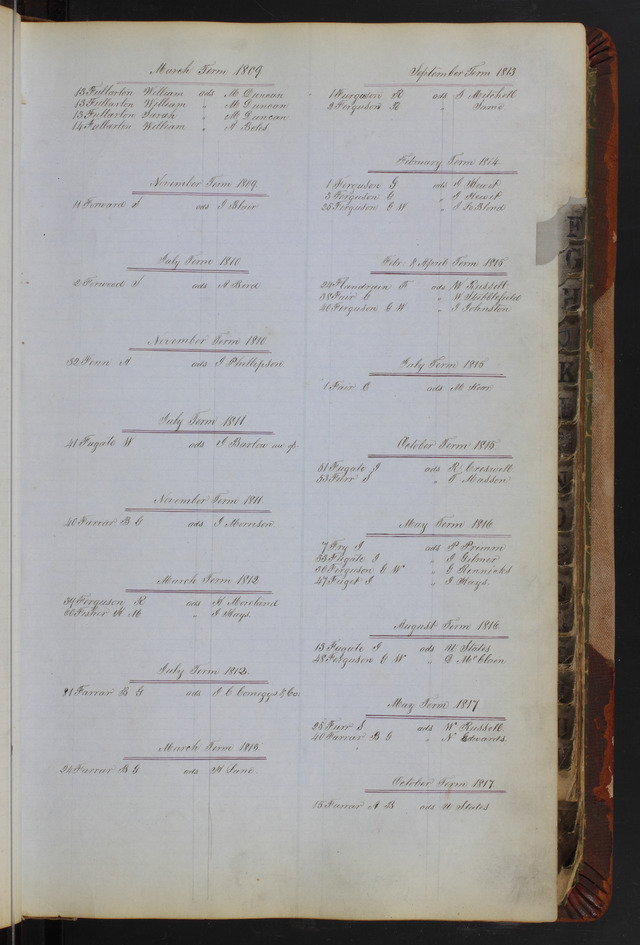 March Term 1809
13 Fullarton William ads M Duncan
13 Fullarton William " M Duncan
13 Fullarton Sarah " M Duncan
14 Fullarton William " A Boles
November Term 1809
11 Forward S ads J Blair
July Term 1810
2 Forwood S ads A Berd
November Term 1810
32 Finn A ads J Phillipson
July Term 1811
41 Fugate W ads J Barlow
November Term 1811
40 Farrar B G ads J Morrison
March Term 1812
39 Ferguson R ads H Morehend
60 Fisher H M " J Hays
July Term 1813
81 Farrar B G ads J C Comegys & Co
March Term 1813
24 Farrar B G ads H Lane
September Term 1813
1 Furguson R ads J Mitchell
2 Ferguson R " Same
February Term 1814
1 Ferguson G ads J Hewit
3 Ferguson G " J Hewit
25 Ferguson G W " J LeBlond
Febr & April Term 1815
24 Flandrain F ads W Russell
38 Fair C " W Stubblefield
40 Ferguson G W " J Johnston
July Term 1815
1 Fair C ads M Kerr
October Term 1815
51 Fugate J ads R Creswell
53 Furr S " F Masson
May Term 1816
7 Fry J ads P Primm
33 Fugate J " J Gilmer
36 Ferguson G W " G Kennicks
47 Fuget J " J Hays
August Term 1816
13 Fugate J ads U States
48 Ferguson G W " D McClain
May Term 1817
25 Furr S ads W Russell
40 Farrar B G " N Edwards
October Term 1817
15 Farrar A B ads U States
F
G
H
J
K